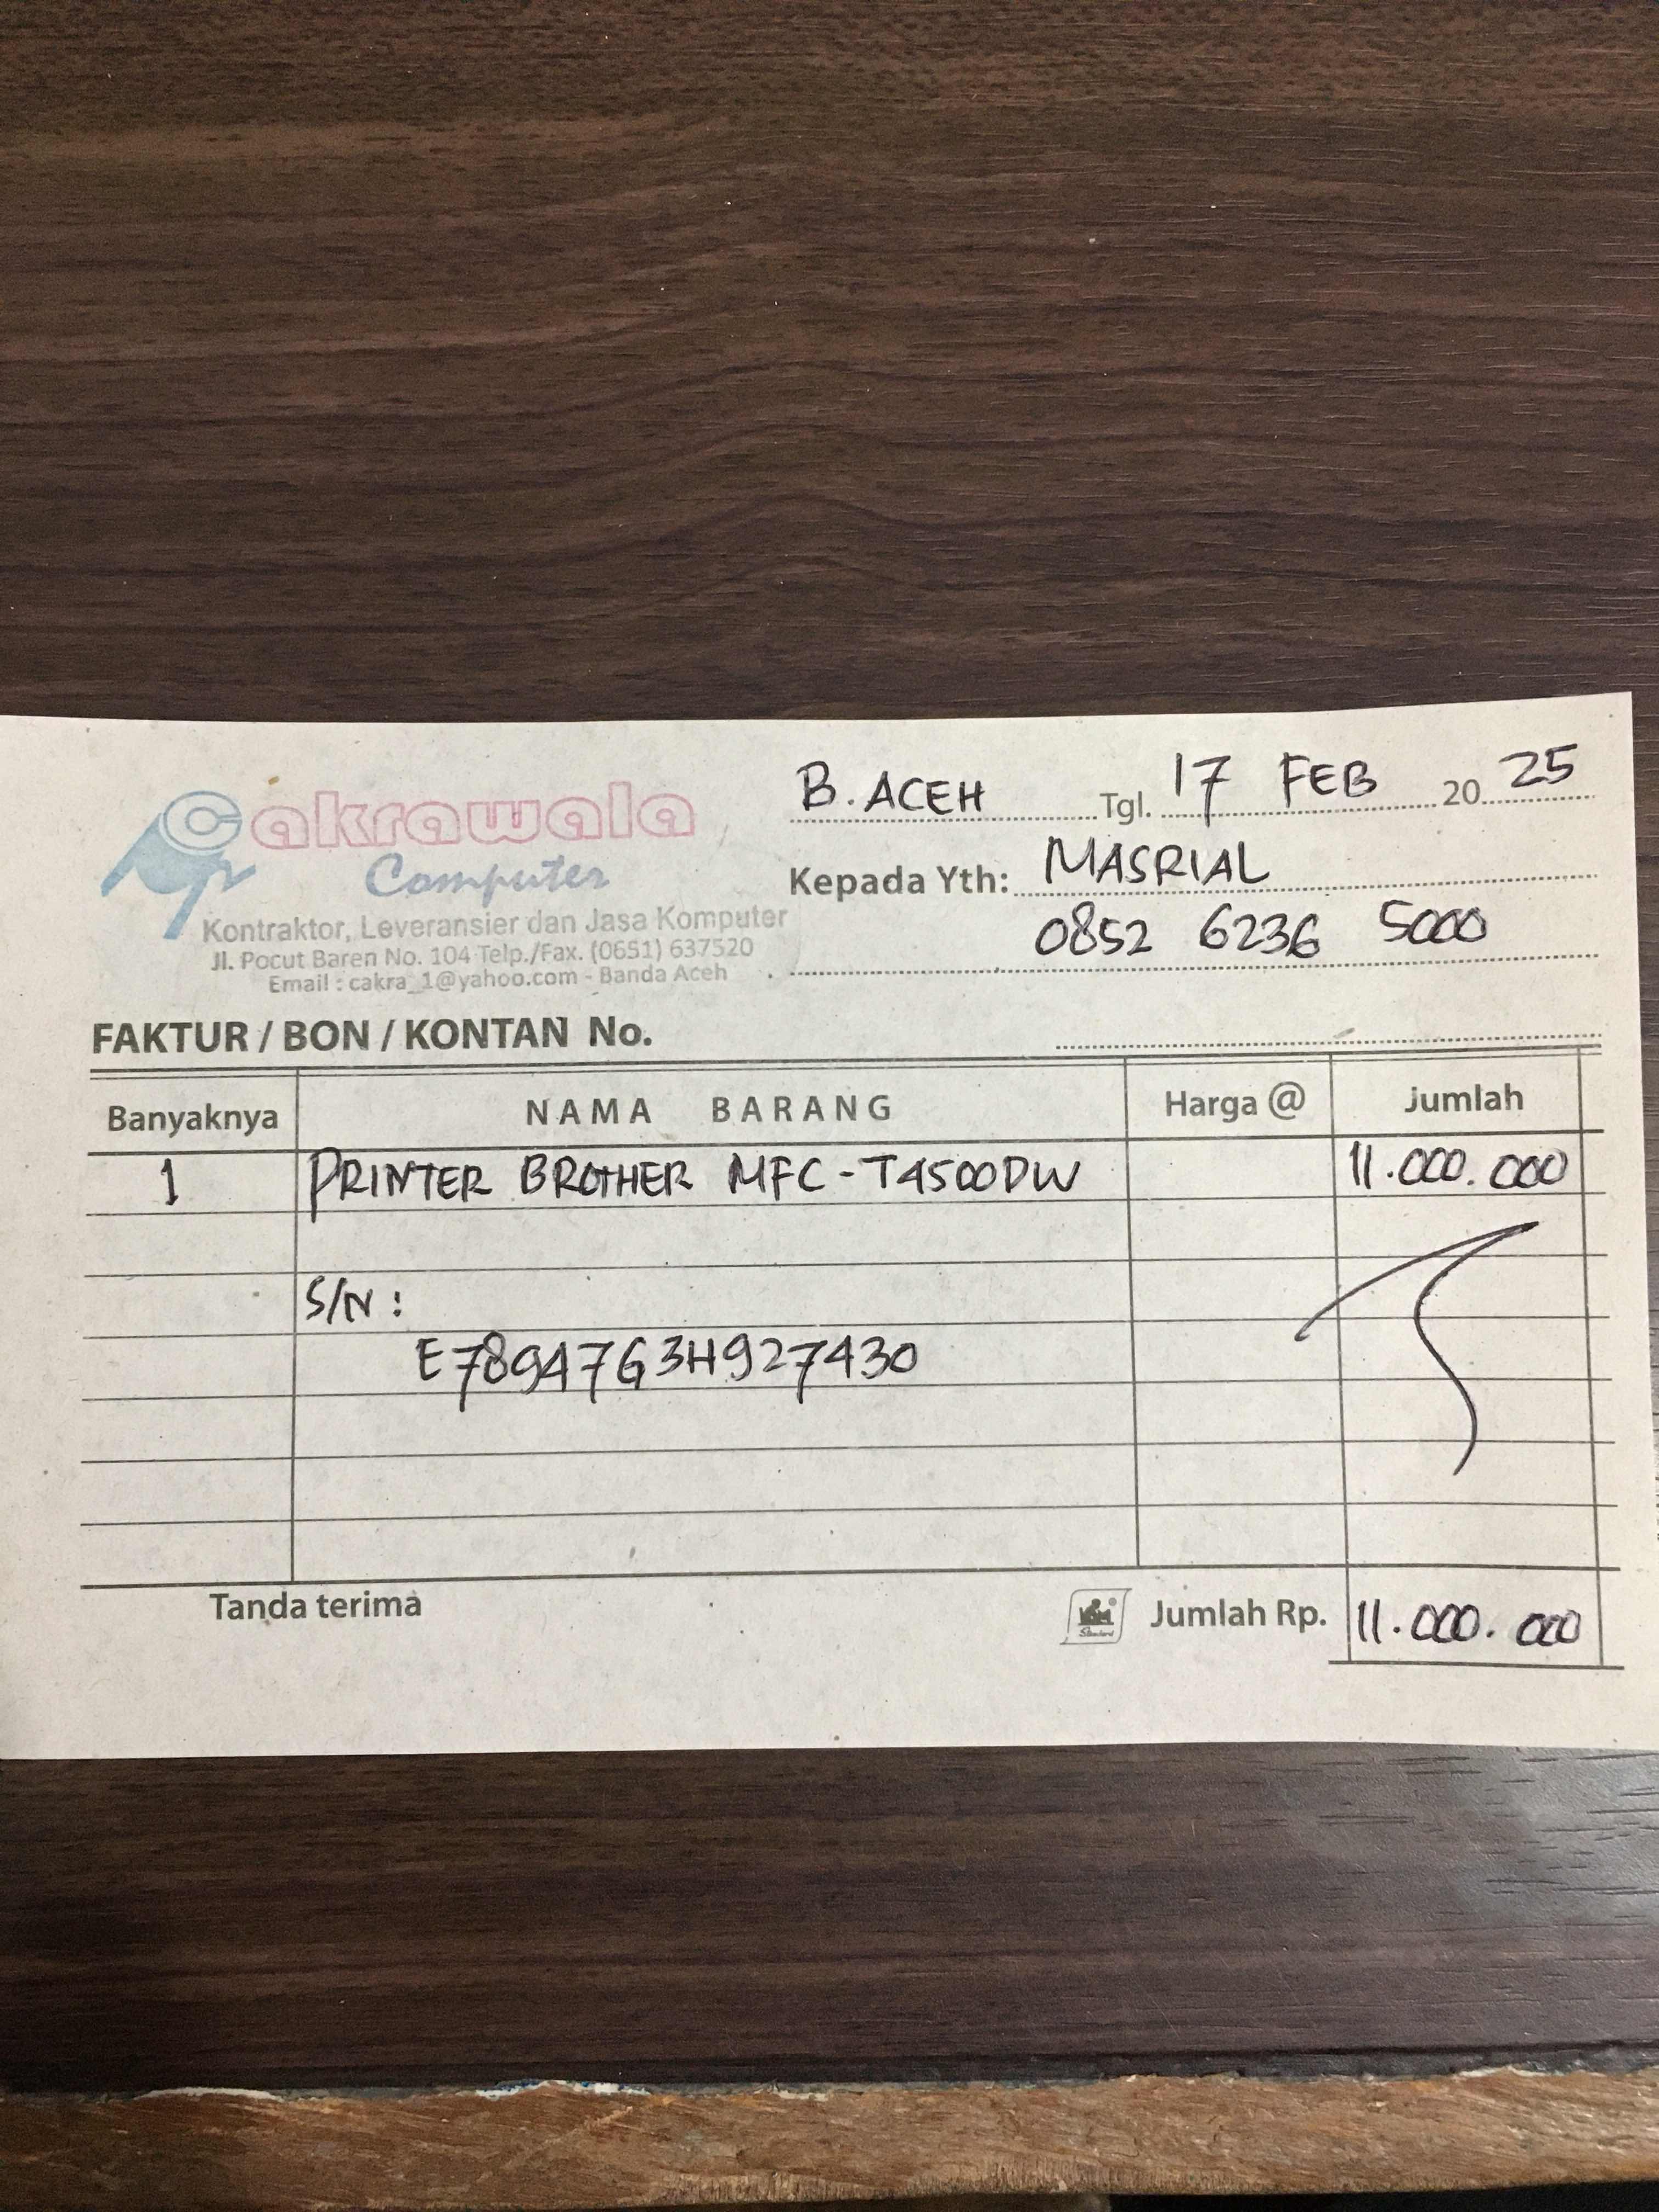 Cakrawala
Computer
Kontraktor, Leveransier dan Jasa Komputer
Jl. Pocut Baren No. 104 Telp./Fax. (0651) 637520
Email : cakra_1@yahoo.com - Banda Aceh
B. ACEH Tgl. 17 FEB 20 25
Kepada Yth: MASRIAL
0852 6236 5000
FAKTUR / BON / KONTAN No.
Banyaknya NAMA BARANG Harga @ Jumlah
1 PRINTER BROTHER MFC-T4500DW 11.000.000
S/N :
E78947G3H927430
Tanda terima Jumlah Rp. 11.000.000